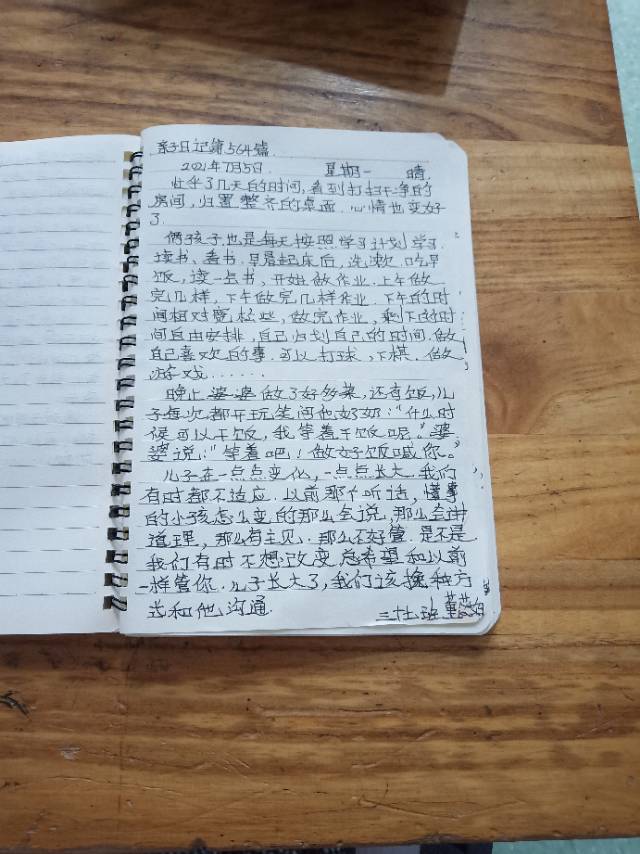 亲子日记第564篇
2021年7月5日 星期一 晴
忙乎了几天的时间,看到打扫干净的
房间,归置整齐的桌面.心情也变好
了.
俩孩子也是每天按照学习计划学习.
读书、看书.早晨起床后,洗漱.吃早
饭,读一点书,开始做作业.上午做
完几样,下午做完几样作业.下午的时
间相对宽松些,做完作业,剩下的时
间自由安排,自己归划自己的时间.做
自己喜欢的事.可以打球,下棋.做
游戏......
晚上婆婆做了好多菜,还有饭,儿
子每次都开玩笑问他奶奶:“什么时
候可以干饭,我等着干饭呢。”婆
婆说:“等着吧!做好饭喊你。”
儿子在一点点变化,一点点长大.我们
有时都不适应.以前那个听话,懂事
的小孩怎么变的那么会说,那么会讲
道理,那么有主见.那么不好管.是不是
我们有时不想改变总希望和以前
一样管你.儿子长大了,我们该换种方
式和他沟通.
三十七班